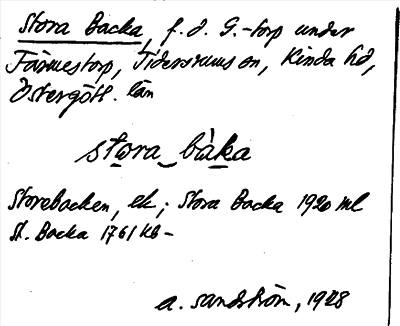 Stora Backa, f. d. G.-torp under
Färmestorp, Tidersrums sn, Kinda hd,
Östergötl. län
stora bàka
Storebacken, ek; Stora Backa 1920 ml
St. Backa 1761 kb –
A. Sandström, 1928